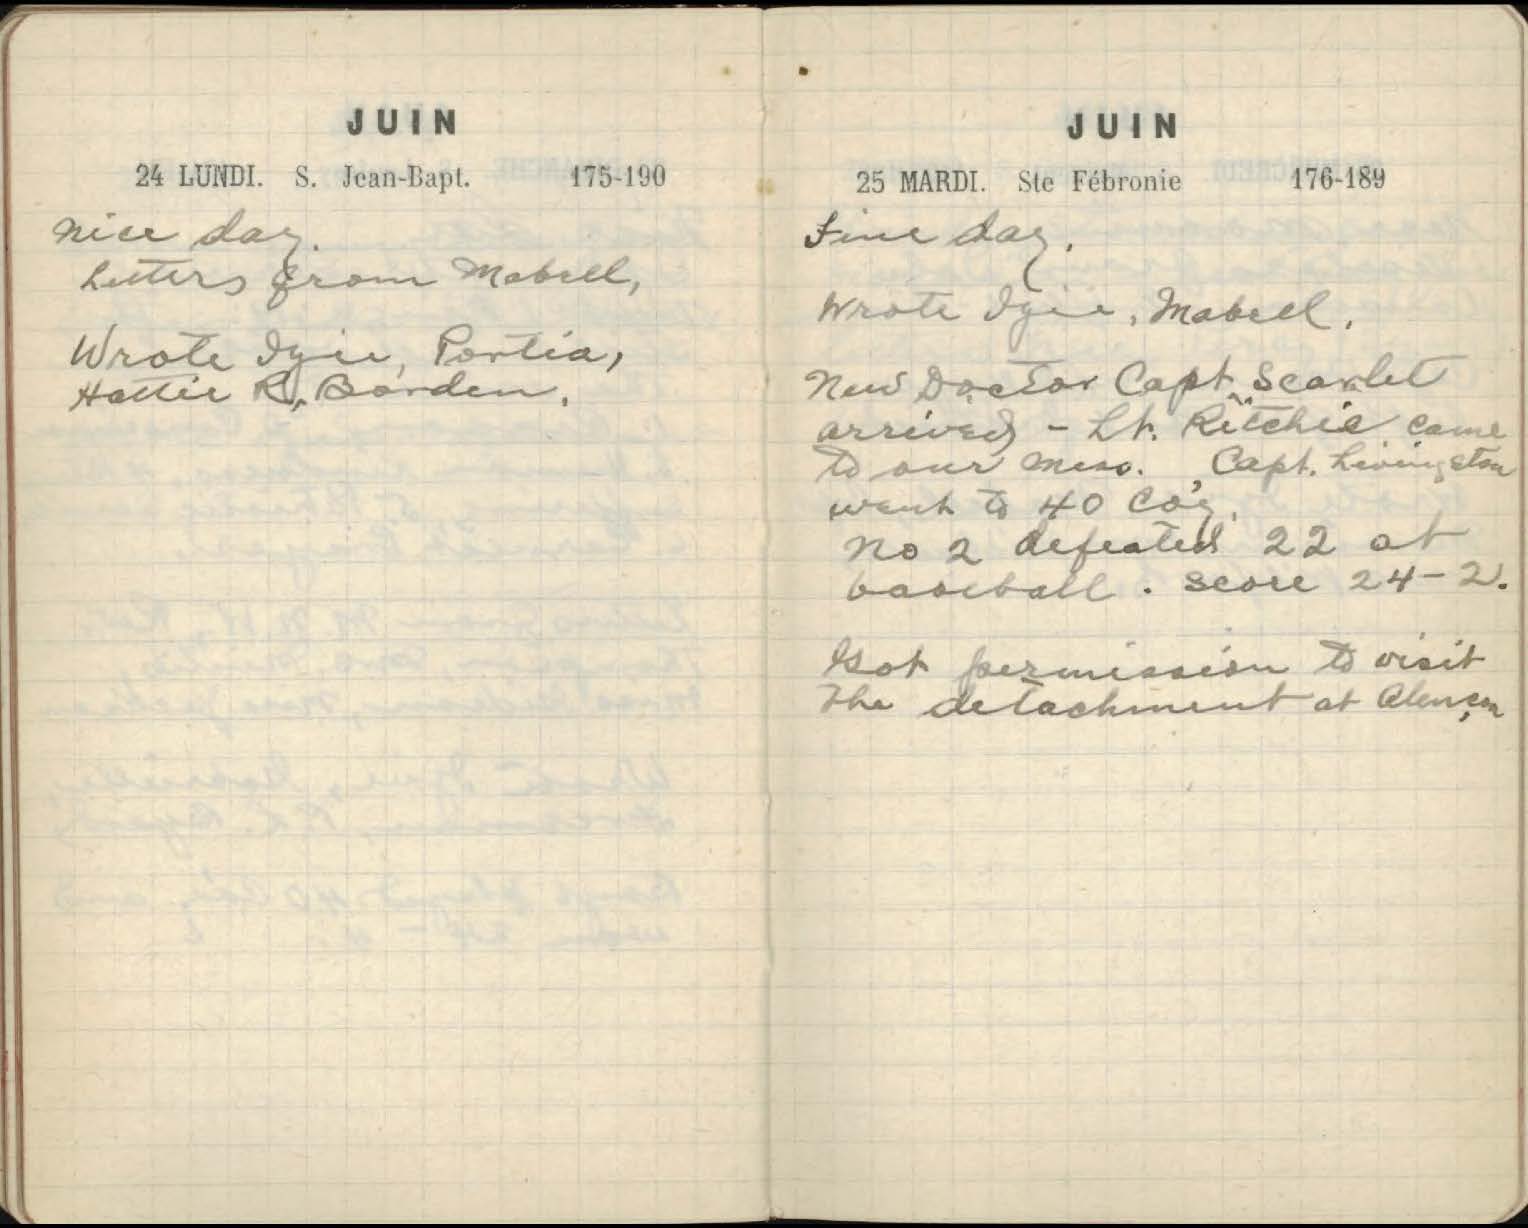 JUIN
24 LUNDI. S. Jean-Bapt. 175-190
Nice day.
Letters from Mabell,
Wrote Izie, Portia,
Hattie R, Borden.
JUIN
25 MARDI. Ste Fébronie 176-189
Fine day.
Wrote Izie, Mabell.
New Doctor Capt Scarlet
arrived - Lt. Ritchie came
to our mess. Capt. Livingston
went to 40 Co'y.
No 2 defeated 22 at
baseball. score 24-2.
Got permission to visit
the detachment at Alençon